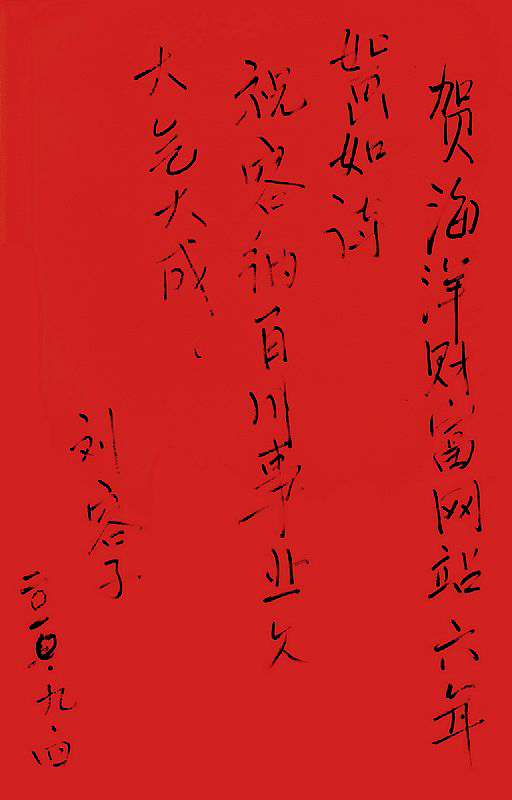 贺海洋财富网站六年
如如诗
祝容纳百川事业久
大气大成、
刘容子
二〇一〇.九.四